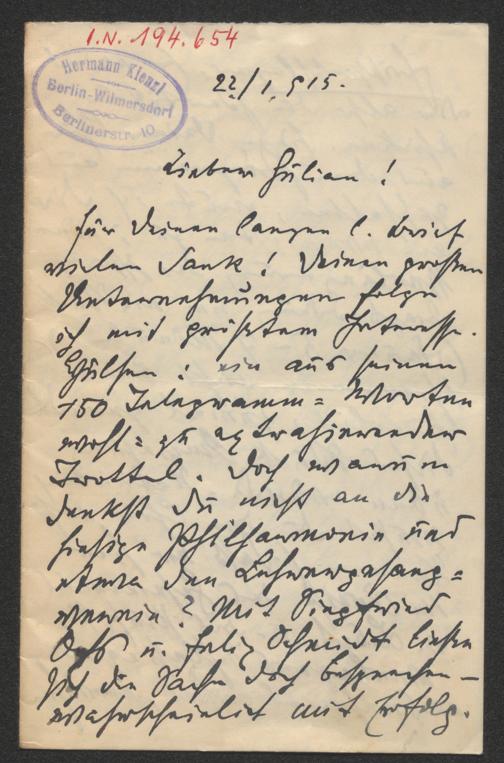 I.N. 194.654
Hermann Kienzl
Berlin-Wilmersdorf
Berlinerstr. 10
22/1. 915.
Lieber Julian!
für Deinen langen l. Brief
vielen Dank! Deinen großen
Unternehmungen folge
ich mit größtem Interesse.
Hülsen: ein aus seinen
150 Telegramm-Worten
wohl-zu extrahierender
Trottel. Doch warum
denkst Du nicht an die
hiesige Philharmonie und
etwa den Lehrergesang-
verein? Mit Siegfried
Ochs u. Felix Schmidt ließe
sich die Sache doch besprechen –
wahrscheinlich mit Erfolg.